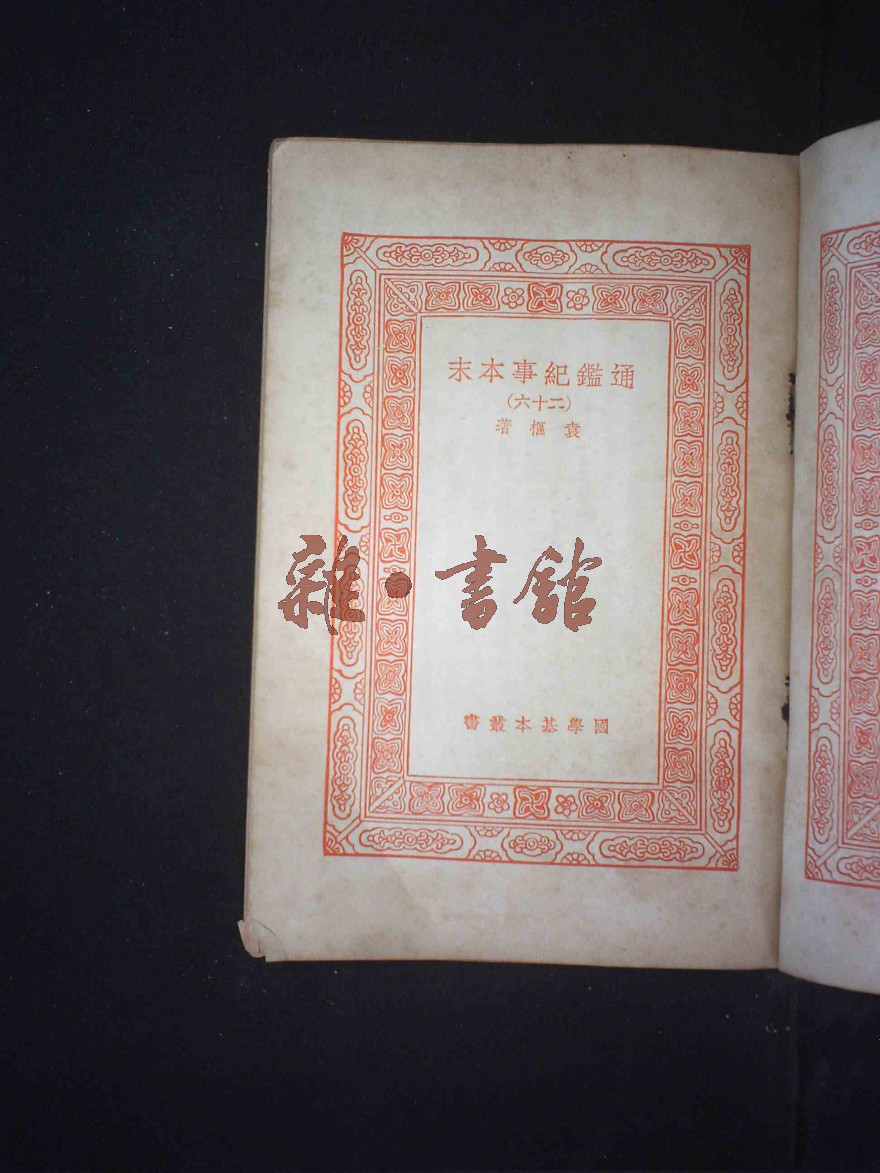 通鑑紀事本末
(二十六)
袁樞著
雜·書館
國學基本叢書